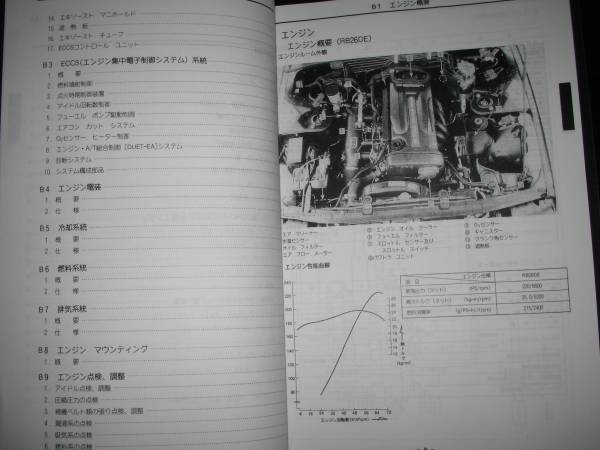 14 エキゾースト マニホールド
15 遮 熱 板
16 エキゾースト チューブ
17 ECCSコントロール ユニット
B3 ECCS(エンジン集中電子制御システム) 系統
1. 概 要
2. 燃料噴射制御
3. 点火時期制御装置
4. アイドル回転数制御
5. フューエル ポンプ駆動制御
6. エアコン カット システム
7. O₂センサー ヒーター制御
8. エンジン・A/T総合制御 [DUET-EA]システム
9. 診断システム
10. システム構成部品
B4 エンジン電装
1. 概 要
2. 仕 様
B5 冷却系統
1. 概 要
2. 仕 様
B6 燃料系統
1. 概 要
2. 仕 様
B7 排気系統
1. 概 要
2. 仕 様
B8 エンジン マウンティング
1. 概 要
B9 エンジン点検、調整
1. アイドル点検、調整
2. 圧縮圧力の点検
3. 補機ベルト類の張り点検、調整
4. 潤滑系の点検
5. 吸気系の点検
6. 燃料系の点検
B1 エンジン概要
エンジン
エンジン概要 (RB26DE)
エンジンルーム外観
エア クリーナー
水温センサー
オイル フィルター
エア フロー メーター
エンジン オイル クーラー
フューエル フィルター
スロットル センサー及び
スロットル スイッチ
パワトラ ユニット
O₂センサー
キャニスター
クランク角センサー
遮熱板
エンジン性能曲線
項目 エンジン仕様 RB26DE
最高出力 (ネット) (PS/rpm)
最大トルク (ネット) (kg-m/rpm)
燃料消費率 (g/PS-h/rpm) 215/2400
エンジン回転数